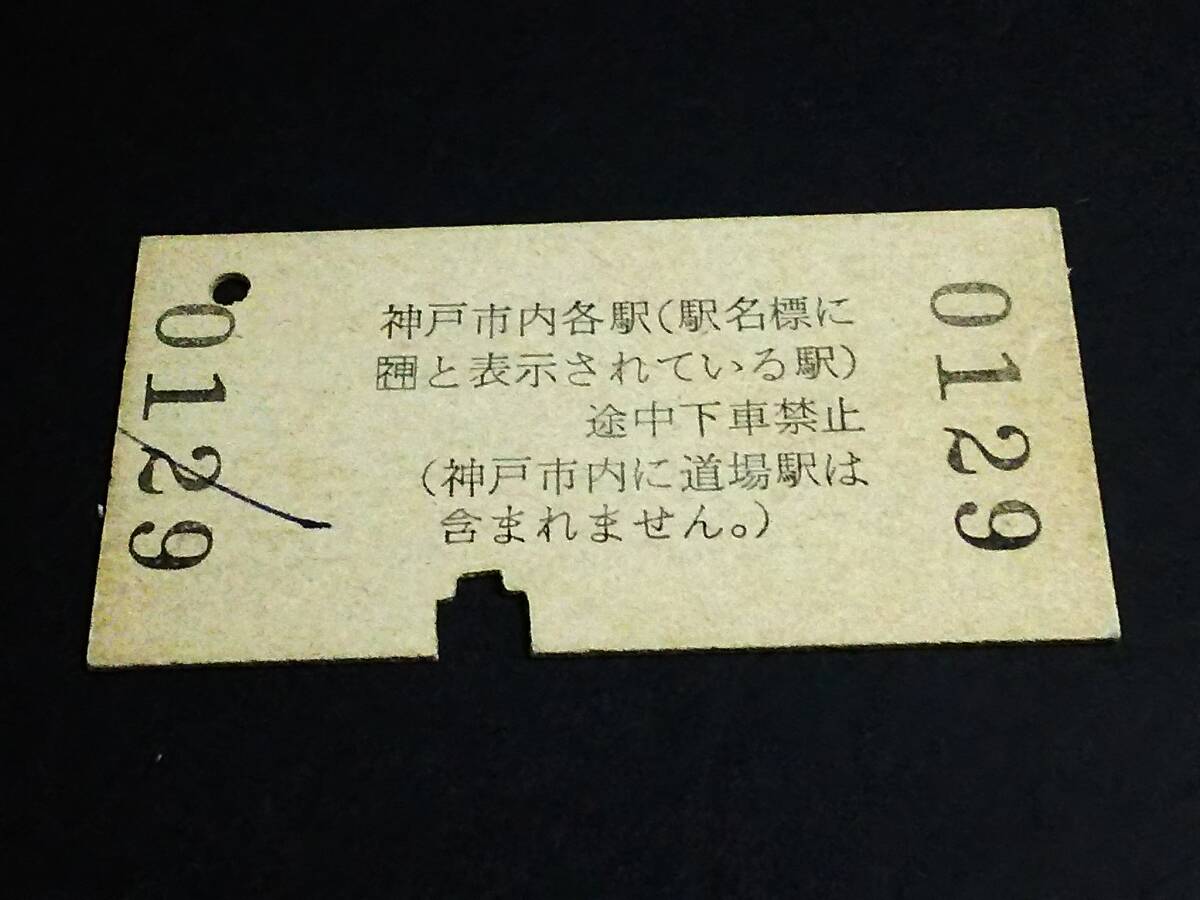 0129
神戸市内各駅(駅名標に
神と表示されている駅)
途中下車禁止
(神戸市内に道場駅は
含まれません。)
0129